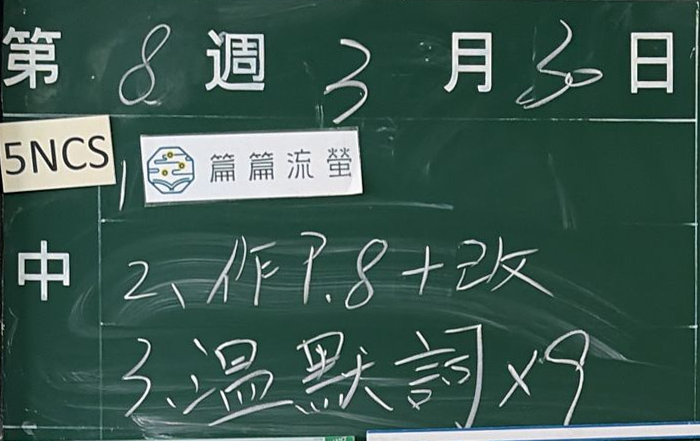 第 8 週 3 月 30 日
5NCS
1 篇篇流螢
中 2、作P.8+改
3.溫默詞x9